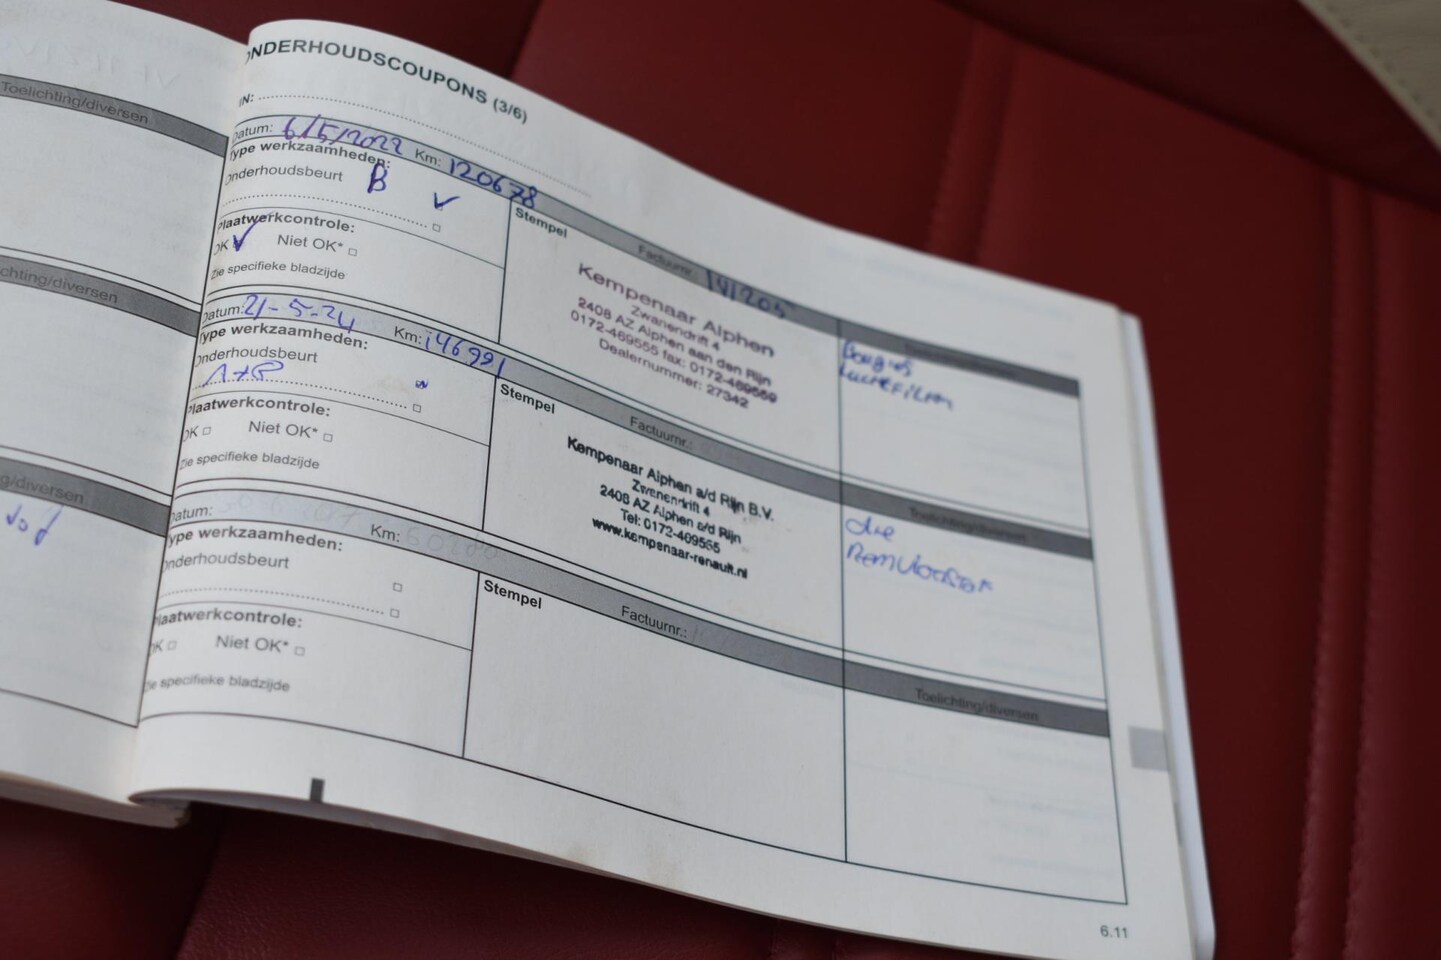 Toelichting/diversen
chting/diversen
g/diversen
ONDERHOUDSCOUPONS (3/6)
IN:
Datum: 6/5/2022 Km: 120678
Type werkzaamheden:
Onderhoudsbeurt B
Plaatwerkcontrole:
OK Niet OK*
Zie specifieke bladzijde
Stempel
Factuurnr.:
Kempenaar Alphen
Zwanendrift 4
2408 AZ Alphen aan den Rijn
0172-469555 fax: 0172-469559
Dealernummer: 27342
Bougies
Datum: 21-5-24 Km: 146991
Type werkzaamheden:
Onderhoudsbeurt
Plaatwerkcontrole:
OK Niet OK*
Zie specifieke bladzijde
Stempel
Factuurnr.:
Toelichting/diversen
Kempenaar Alphen a/d Rijn B.V.
Zwanendrift 4
2408 AZ Alphen a/d Rijn
Tel: 0172-469555
www.kempenaar-renault.nl
Olie
Remvloeistof
Datum: Km:
Type werkzaamheden:
Onderhoudsbeurt
Plaatwerkcontrole:
OK Niet OK*
Zie specifieke bladzijde
Stempel
Factuurnr.:
Toelichting/diversen
6.11